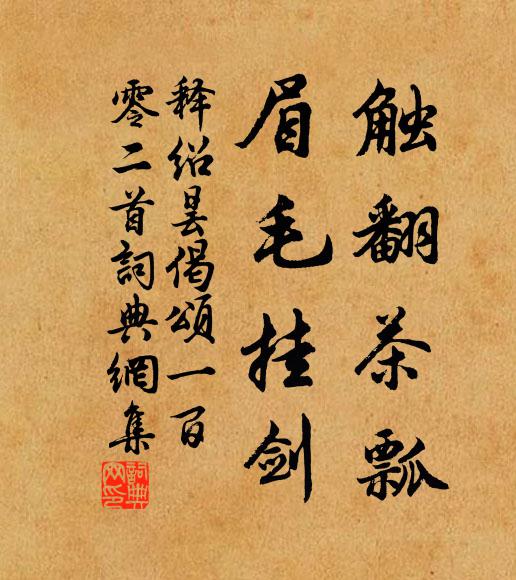 触翻茶瓢
眉毛挂剑
释绍昙偈頌一百
零二首詞典網集
詞典网印